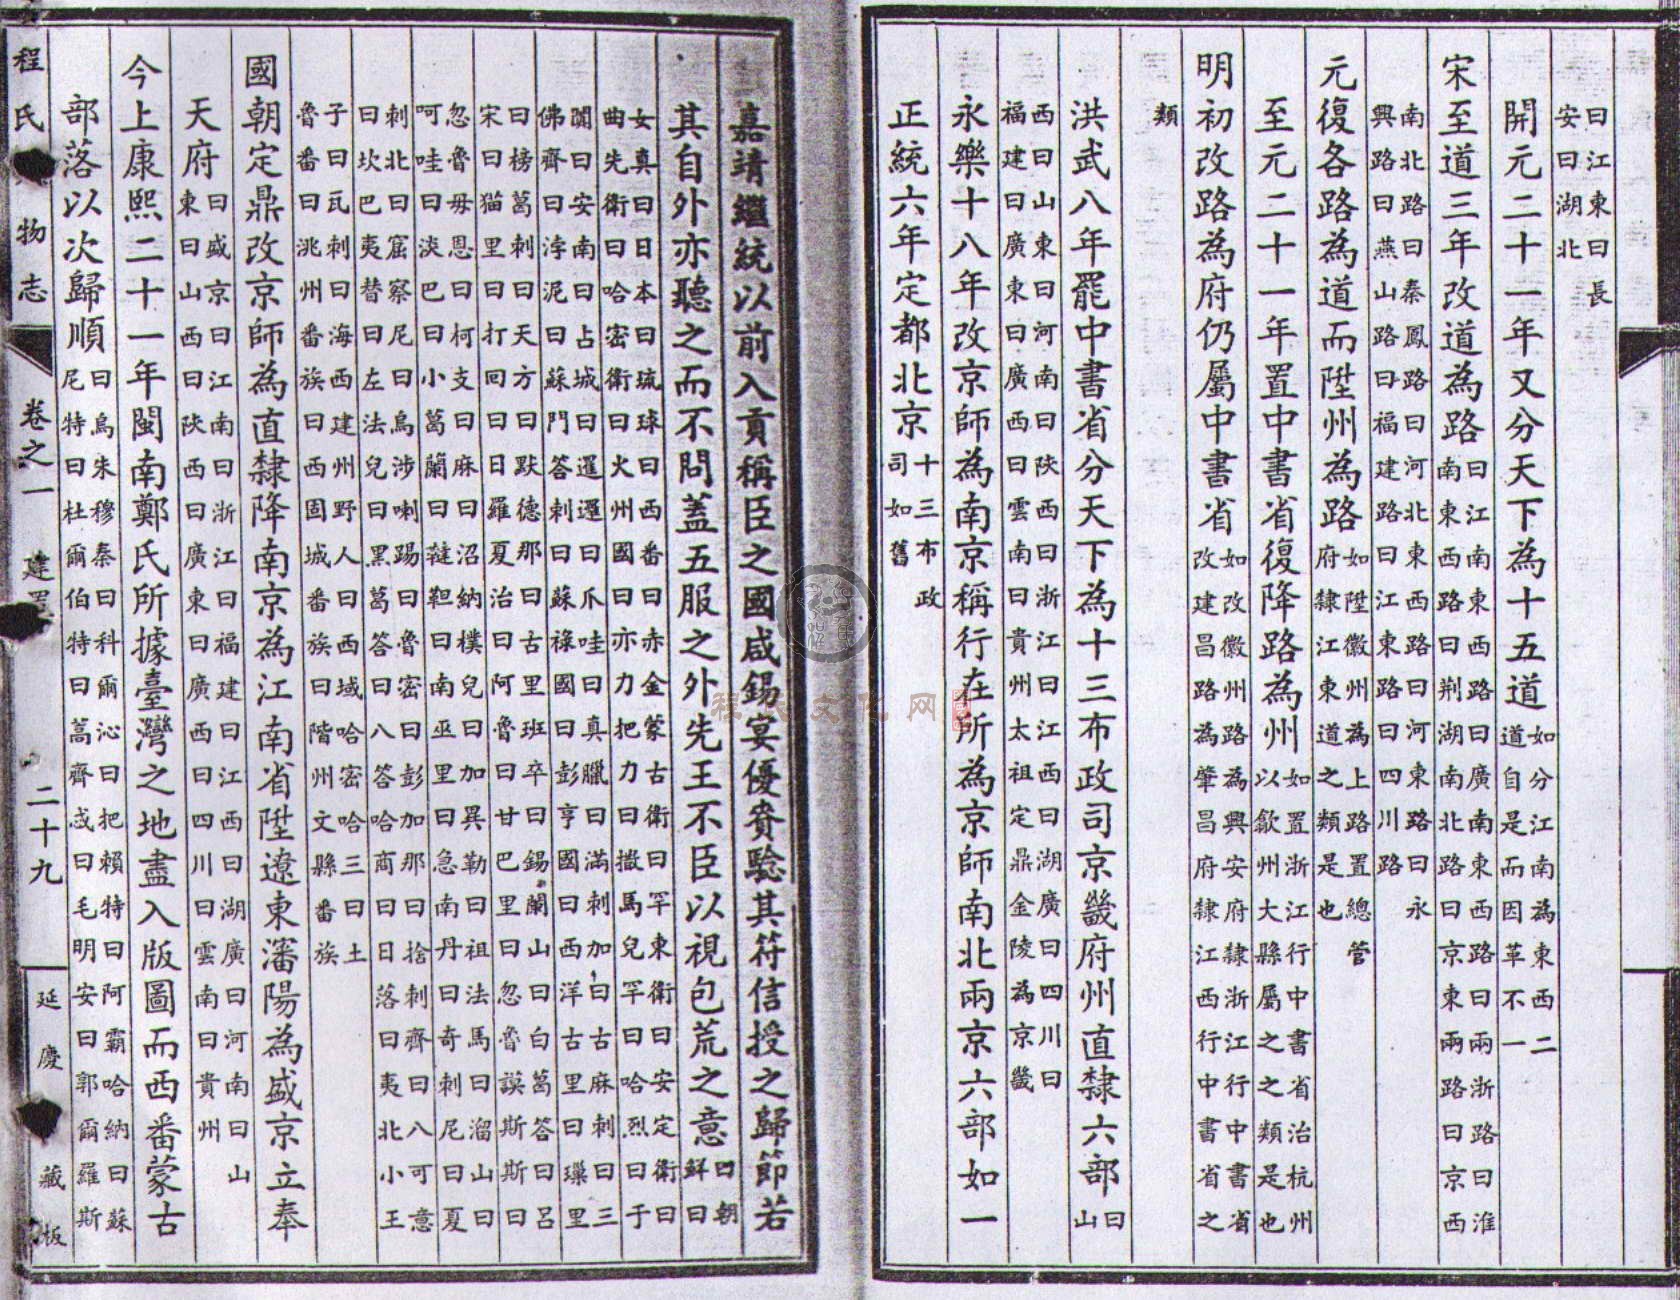 曰江東曰長
安曰湖北
開元二十一年又分天下為十五道如分江南為東西二
道自是而因革不一
宋至道三年改道為路曰江南東西路曰廣南東西路曰兩浙路曰淮
南東西路曰荆湖南北路曰京東兩路曰京西
南北路曰秦鳳路曰河北東西路曰河東路曰永
興路曰燕山路曰福建路曰江東路曰四川路
元復各路為道而陞州為路如陞徽州為上路置總管
府隸江東道之類是也
至元二十一年置中書省復降路為州如置浙江行中書省治杭州
以歙州大縣屬之之類是也
明初改路為府仍屬中書省如改徽州路為興安府隸浙江行中書省
改建昌路為肇昌府隸江西行中書省之
類
洪武八年罷中書省分天下為十三布政司京畿府州直隸六部曰
山
西曰山東曰河南曰陝西曰浙江曰江西曰湖廣曰四川曰
福建曰廣東曰廣西曰雲南曰貴州太祖定鼎金陵為京畿
永樂十八年改京師為南京稱行在所為京師南北兩京六部如一
正統六年定都北京十三布政
司如舊
嘉靖繼統以前入貢稱臣之國咸錫宴優賚驗其符信授之歸節若
其自外亦聽之而不問蓋五服之外先王不臣以視包荒之意曰朝
鮮曰
女真曰日本曰琉球曰西番曰赤金蒙古衛曰罕東衛曰安定衛曰
曲先衛曰哈密衛曰火州國曰亦力把力曰撒馬兒罕曰哈烈曰于
闐曰安南曰占城曰暹邏曰爪哇曰真臘曰滿刺加曰古麻刺曰三
佛齊曰浡泥曰蘇門答刺曰蘇祿國曰彭亨國曰西洋古里曰瑣里
曰榜葛刺曰天方曰默德那曰古里班卒曰錫蘭山曰白葛答曰呂
宋曰猫里曰打囘曰日羅夏治曰阿魯曰甘巴里曰忽魯謨斯斯曰
忽魯毋恩曰柯支曰麻曰沼納樸兒曰加異勒曰祖法馬曰溜山曰
呵哇曰淡巴曰小葛蘭曰韃靼曰南巫里曰急南丹曰奇刺尼曰夏
刺北曰窟察尼曰烏涉喇踢曰魯密曰彭加那曰捨刺齊曰八可意
曰坎巴夷替曰左法兒曰黑葛答曰八答哈商曰日落曰夷北小王
子曰瓦刺曰海西建州野人曰西域哈密哈三曰土
魯番曰洮州番族曰西固城番族曰階州文縣番族
國朝定鼎改京師為直隸降南京為江南省陞遼東瀋陽為盛京立奉
天府曰盛京曰江南曰浙江曰福建曰江西曰湖廣曰河南曰山
東曰山西曰陝西曰廣東曰廣西曰四川曰雲南曰貴州
今上康熙二十一年閩南鄭氏所據臺灣之地盡入版圖而西番蒙古
部落以次歸順曰烏朱穆秦曰科爾沁曰把賴特曰阿霸哈納曰蘇
尼特曰杜爾伯特曰蒿齊忒曰毛明安曰郭爾羅斯
程氏
物志
卷之一
建置
二十九
延慶
藏板
程氏文化网